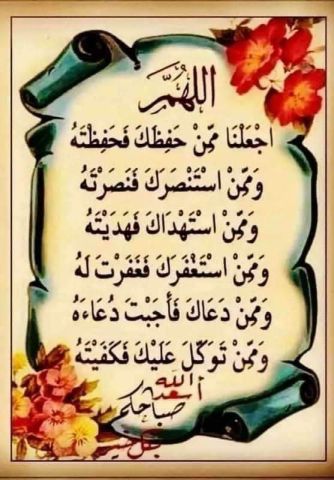 اللهُمَّ
اجْعَلْنَا مِمَّنْ حَفِظَكَ فَحَفِظْتَهُ
وَمِمَّنْ اسْتَنْصَرَكَ فَنَصَرْتَهُ
وَمِمَّنْ اسْتَهْدَاكَ فَهَدَيْتَهُ
وَمِمَّنْ اسْتَغْفَرَكَ فَغَفَرْتَ لَهُ
وَمِمَّنْ دَعَاكَ فَأَجَبْتَ دُعَاءَهُ
وَمِمَّنْ تَوَكَّلَ عَلَيْكَ فَكَفَيْتَهُ
أسعد الله
صباحكم
بكل خير